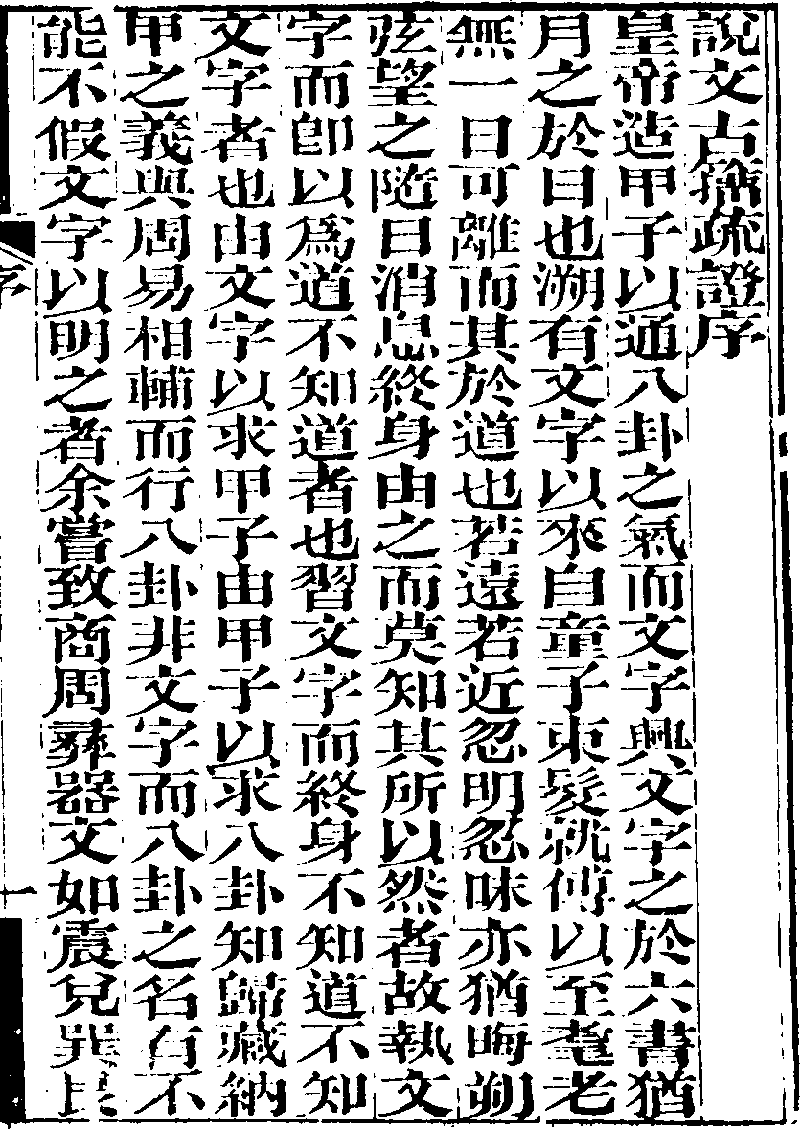 說文古籀疏證序
皇帝造甲子以通八卦之氣而文字興文字之於六書猶
月之於日也溯有文字以來自童子束髮就傅以至耄老
無一日可離而其於道也若遠若近忽明忽昧亦猶晦朔
弦望之隨日消息終身由之而莫知其所以然者故執文
字而卽以爲道不知道者也習文字而終身不知道不知
文字者也由文字以求甲子由甲子以求八卦知歸藏納
甲之義與周易相輔而行八卦非文字而八卦之名有不
能不假文字以明之者余嘗致商周彞器文如震兌巽艮
序
一